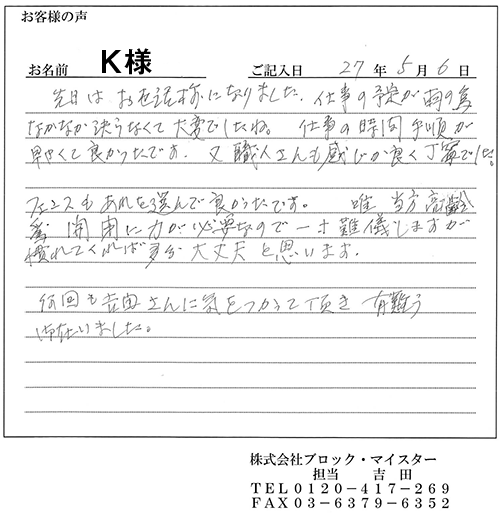 お客様の声
お名前 K様 ご記入日 27年5月6日
先日はお世話様になりました。仕事の予定が雨の為
なかなか決らなくて大変でしたね。仕事の時間手順が
早くて良かったです。又職人さんも感じが良く丁寧でした。
フェンスもあれを選んで良かったです。唯当方高齢
為開閉に力が必要なので一寸難儀しますが
慣れてくれば多分大丈夫と思います。
何回も吉田さんに気をつかって頂き有難う
御座いました。
株式会社ブロック・マイスター
担当 吉田
TEL0120-417-269
FAX03-6379-6352